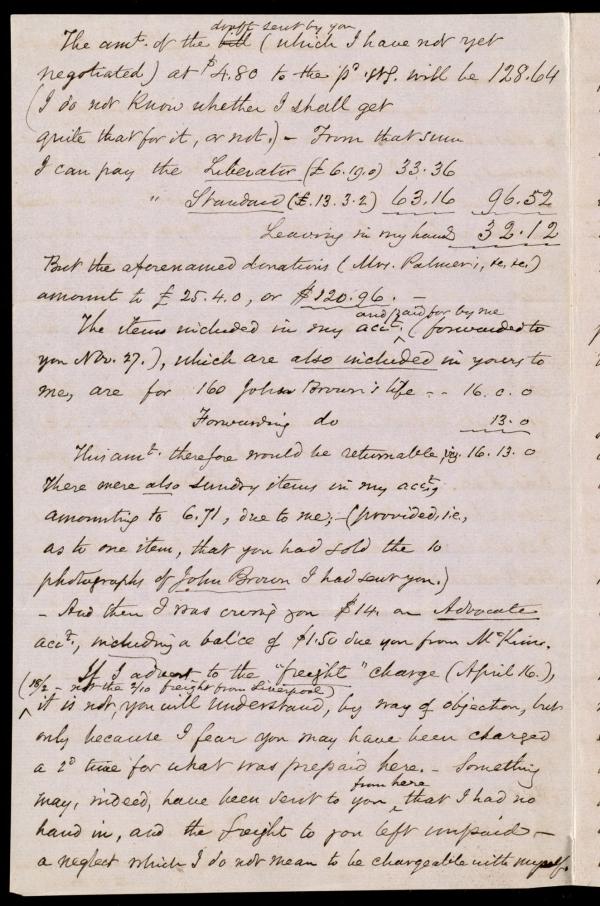 draft sent by you
The amt. of the bill (which I have not yet
negotiated) at $4.80 to the pd. stg. will be 128.64
(I do not know whether I shall get
quite that for it, or not.) – From that sum
I can pay the Liberator (£6.19.0) 33.36
" Standard (£.13.3.2) 63.16 96.52
Leaving in my hands 32.12
But the aforenamed donations (Mrs. Palmer's, &c. &c.)
amount to £25.4.0, or $120.96. –
and paid for by me
The items included in my acct. (forwarded to
you Nov. 27.), which are also included in yours to
me, are for 160 John Brown's life - - 16. 0. 0
Forwarding do 13. 0
This amt. therefore would be returnable, viz. 16. 13. 0
There were also sundry items in my acct.,
amounting to 6.71, due to me; – (provided, i.e.,
as to one item, that you had sold the 10
photographs of John Brown I had sent you.)
– And then I was owing you $14. on Advocate
acct., including a bal'ce of $1.50 due you from McKim.
If I advert to the "freight" charge (April 16.),
(18/2 – not the 2/10 freight from Liverpool)
it is not, you will understand, by way of objection, but
only because I fear you may have been charged
a 2d time for what was prepaid here. – Something
from here
may, indeed, have been sent to you, that I had no
hand in, and the freight to you left unpaid –
a neglect which I do not mean to be chargeable with myself.